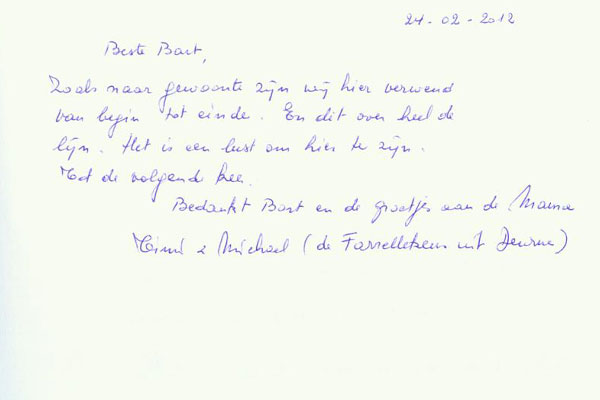 24-02-2012
Beste Bart,
Zoals naar gewoonte zijn wij hier verwend
van begin tot einde. En dit over heel de
lijn. Het is een lust om hier te zijn.
Tot de volgende kee.
Bedankt Bart en de groetjes aan de Mama
& Michael (de uit Deurne)